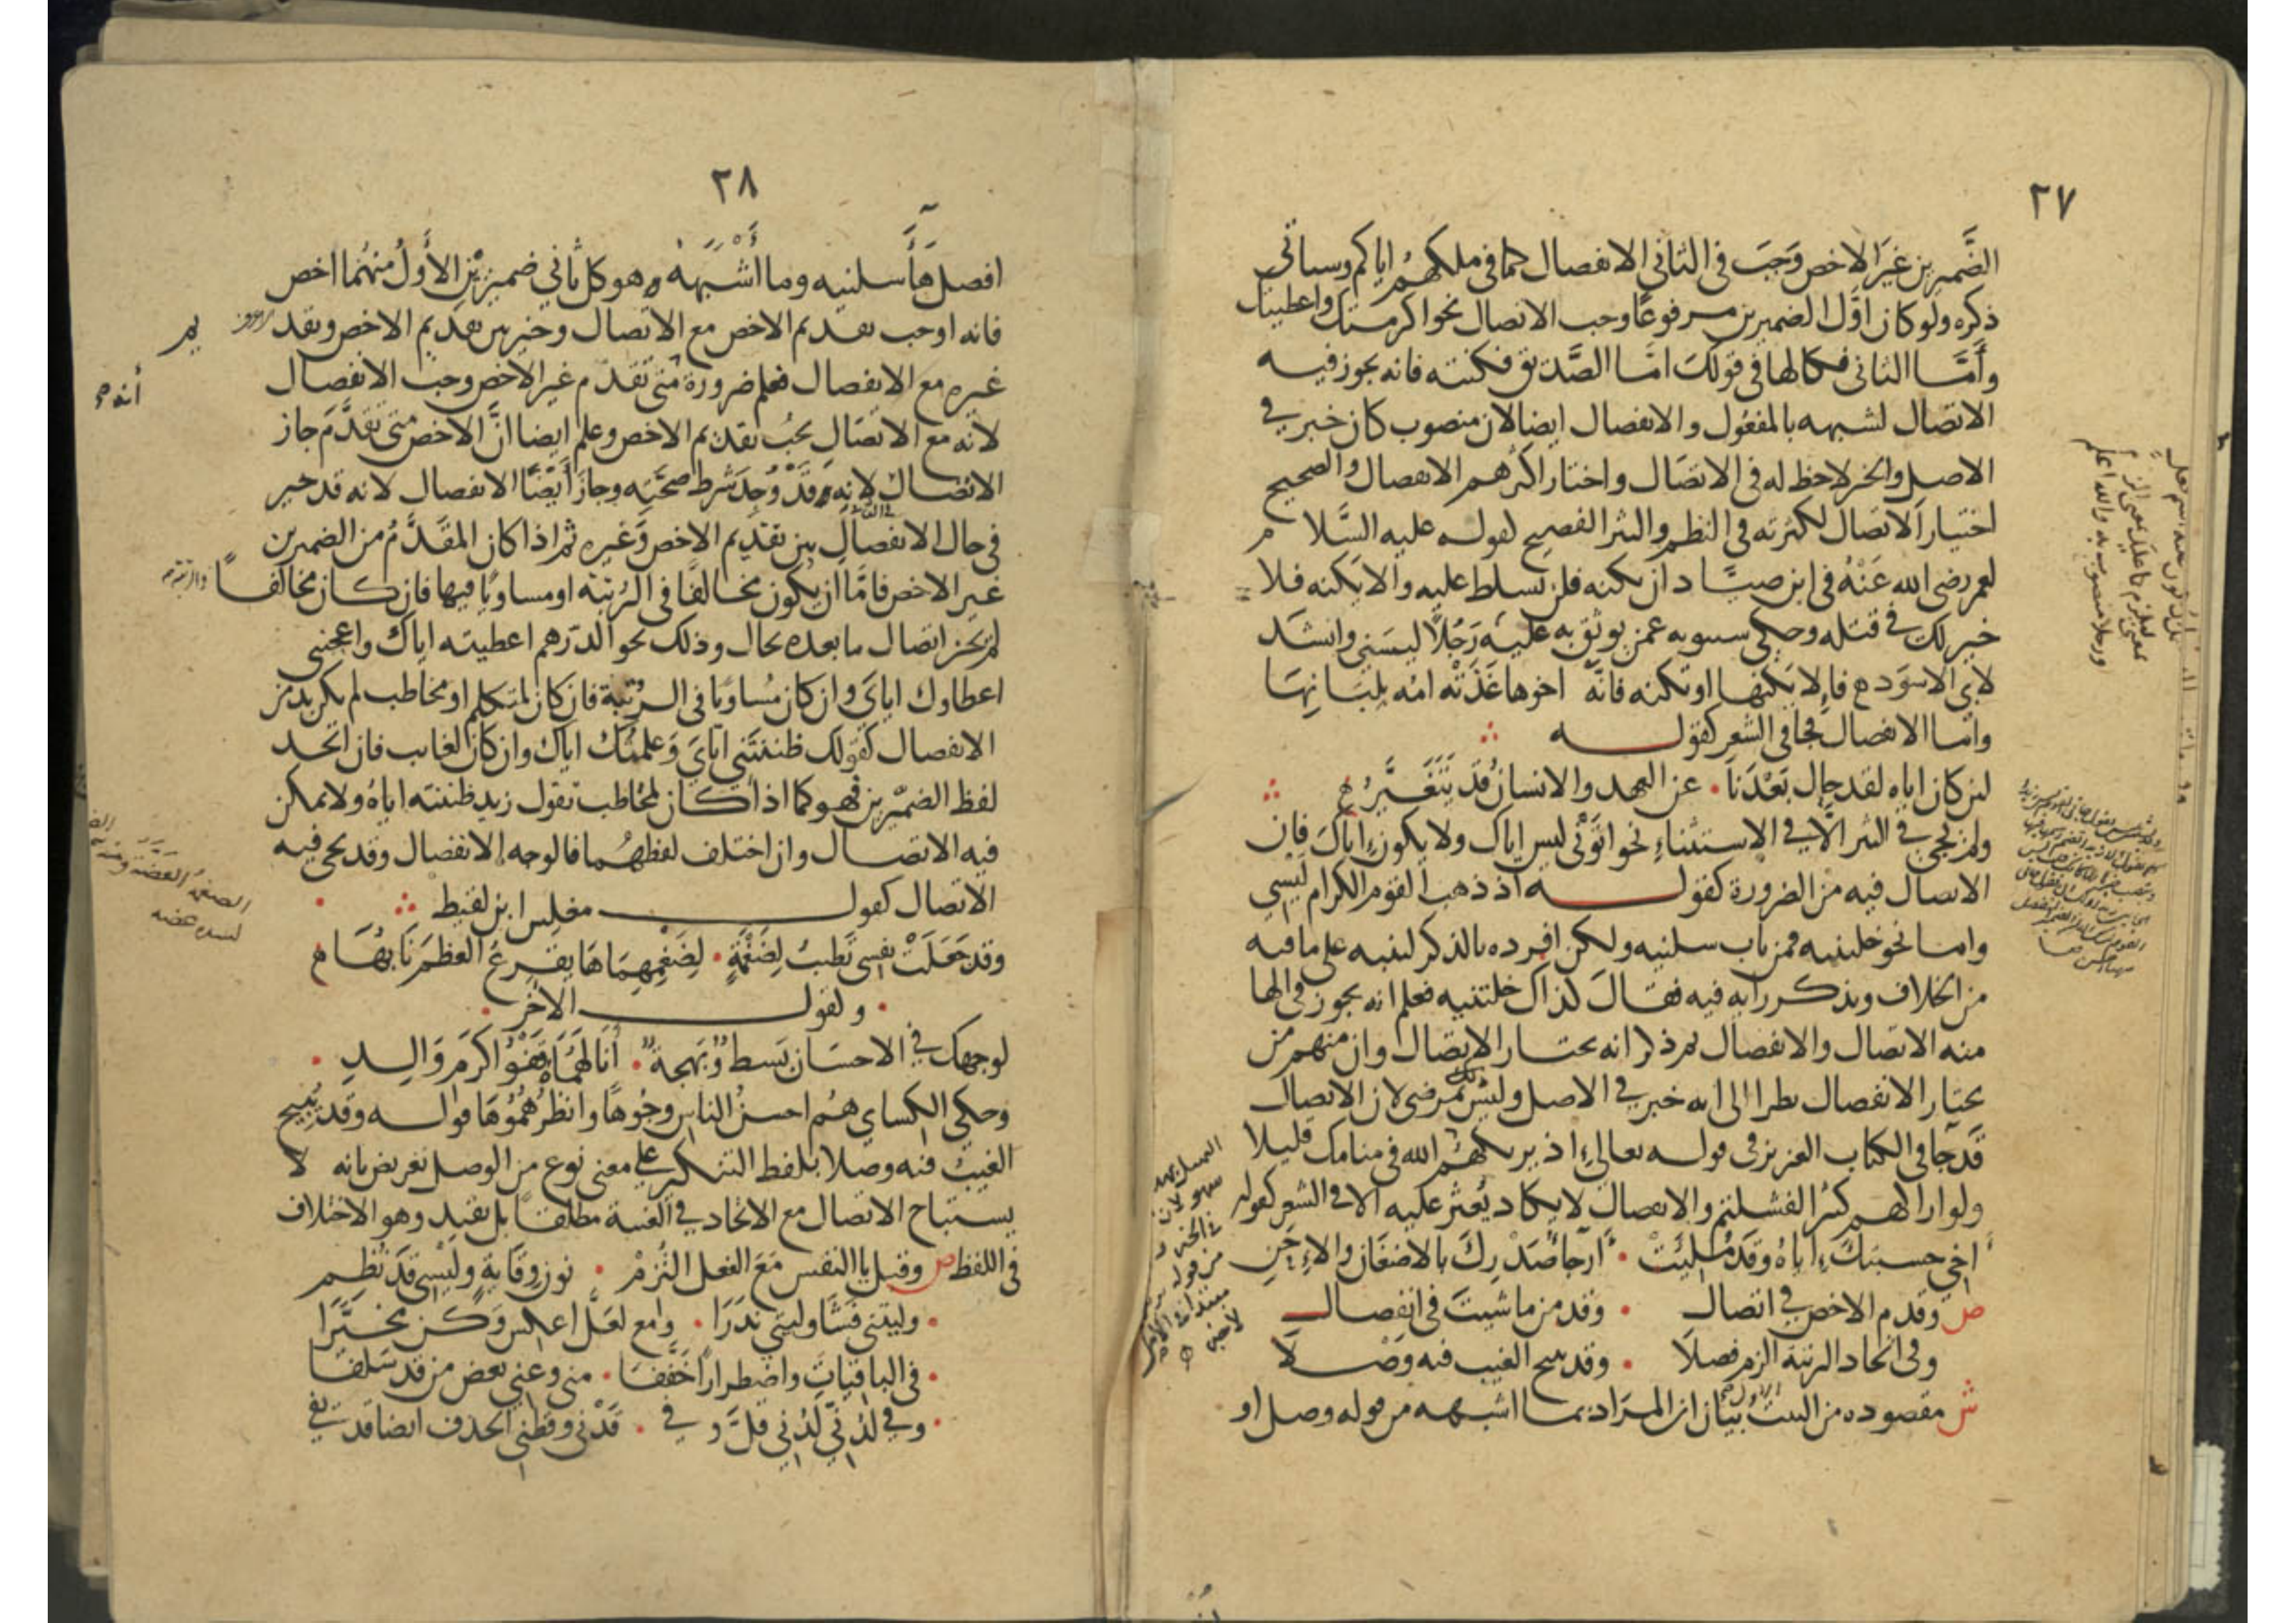 ٢٧
الضَّميرين غيرَ الاخص وَجَبَ في الثاني الانفصال كما في ملكهُم اياكم وسياتي
ذكره ولو كان اوّل الضميرين مرفوعًا وجب الاتصال نحو اكرمتك واعطيتك
وأَمَّا الثاني فكالها في قولكَ امّا الصَّديق فكنته فانه يجوز فيه
الاتصال لشبهه بالمفعُول والانفصال ايضا لان منصوب كان خبر في
الاصل والخبر لاحظ له في الاتصَال واختار اكثرهم الانفصال والصحيح
اختيار الاتصَال لكثرته في النظم والنثر الفصيح لقوله عليه السَّلام
لعمر رضى الله عَنْهُ في ابن صيّاد ان يكنه فلن تسلط عليه والا يكنه فلا
خير لك في قتله وحكى سيبويه عمن يوثق به عليه رَجُلًا ليسَني وانشد
لابي الاسوَد ع فإِلا يَكنها او تكنه فانَّه اخوها غَذَتْه امّه بِلِبَانِهَا
وامّا الانفصال فجا في الشعر كقوله
لئن كان اياه لقد حال بَعْدَنَا . عن العهد والانسان قَد يَتَغَيَّرُ
ولم يجي في النثر الّا في الاستثناءِ نحو اتَوْني ليس اياك ولا يكون اياكَ فان
الاتصال فيه من الضرورة كقوله اذ ذهب القوم الكرام لَيْسِي
وامّا نحو خلتنيه فمن باب سلنيه ولكن افرده بالذكر لينبه على ما فيه
من الخلاف ويذكر رايه فيه فقالَ كذاك خلتنيه فعلم انه يجوز في الها
منه الاتصال والانفصال ثم ذكر انه يختار الاتصال وان منهم من
يختار الانفصال نظرا الى انه خبر في الاصل وليس بمرضى لان الاتصال
قَد جَا في الكتاب العزيز في قوله تعالى اذ يريكهُم الله في منامك قليلا
ولو اراكهم كثيرا لفشلتم والانفصال لا يكاد يُعثر عليه الا في الشعر كقوله
اخي حسبتكَ اياهُ وقَد مُلِئَتْ . أرجآءُ صَدْرِكَ بالاضغان والاِحَنِ
ص وقدم الاخص في اتصال . وقدمن ما شيتَ في انفصال
وفي اتحاد الرتبة الزم فصلَا . وقد يبيح الغيب فيه وَصْلَا
ش مقصوده من البيت الاول بيَان ان المرَاد بما اشبهه من قوله وصل او
ورجلا منصوب به والله اعلم
٢٨
افصل هَأ سلنيه وما أَشْبَهَهُ وهو كل ثاني ضميرَيْن الأَولُ منهُما اخص
فانه اوجب تقديم الاخص مع الاتصال وخير بين تقديم الاخص وتقديم
غيره مع الانفصال فعلم ضرورة متى تقدّم غير الاخص وجب الانفصال
لأنه مع الاتصَال يجبُ تقديم الاخص وعلم ايضا انّ الاخص متى تقدَّمَ جاز
الاتصال لانه قَدْ وُجِدَ شرط صحّته وجازَ أَيْضًا الانفصال لانه قد خير
في حال الانفصالِ بين تقديم الاخص وَغيره ثم اذا كان المقدَّمُ من الضميرين
غير الاخص فامَّا ان يكون مخالفًا في الرُتبَة او مساويًا فيها فان كان مخالفًا
لم يجز اتصال ما بعده بحال وذلك نحو الدّرهم اعطيته اياك واعجبني
اعطاوك ايايَ وان كان مُساويًا في الرُتبة فان كان لمتكلم او مخاطب لم يكن بد من
الانفصال كقولك ظننتَني ايايَ وَعلمتُك اياك وان كان لغايب فان اتحد
لفظ الضميرين فهو كما اذا كان لمخاطب تقول زيد ظننته اياهُ ولا يمكن
فيه الاتصال وان اختلف لفظهُما فالوجه الانفصال وقد يجي فيه
الاتصال كقول مغلس ابن لقيط
وقد جَعَلَتْ نفسي تَطيبُ لِضَغْمَةٍ . لِضَغْمِهِمَاهَا يقرع العظمَ نَابُهَا
ولقول الاخر
لوجهك في الاحسَان بَسط وَبَهجة . أنَالَهُمَاهُ قَفْوُ اكرَمِ وَالِدِ
وحكى الكساي هُم احسنُ الناس وجُوهًا وانظرُهمُوهَا قوله وقد يُبيح
الغيبُ فيه وصلا بلفظ التنكير على معنى نوع من الوصل تعريض بانه لا
يستباح الاتصال مع الاتحاد في الغيبة مطلقًا بل بقيد وهو الاختلاف
في اللفظ ص وقبل يا النفس مَعَ الفعل التُزمْ . نون وقايةٍ وليْسِي قَد نُظِم
وليتني فَشَا وليتي نَدَرَا . وامع لعَلَّ اعكس وَكن مخيّرَا
في الباقياتِ واضطرارًا خفَّفَا . مني وعني بعض من قد سَلفَا
وفي لدُنّي لدُني قلَّ وفي . قَدْني وقطني الحذف ايضا قد يفي